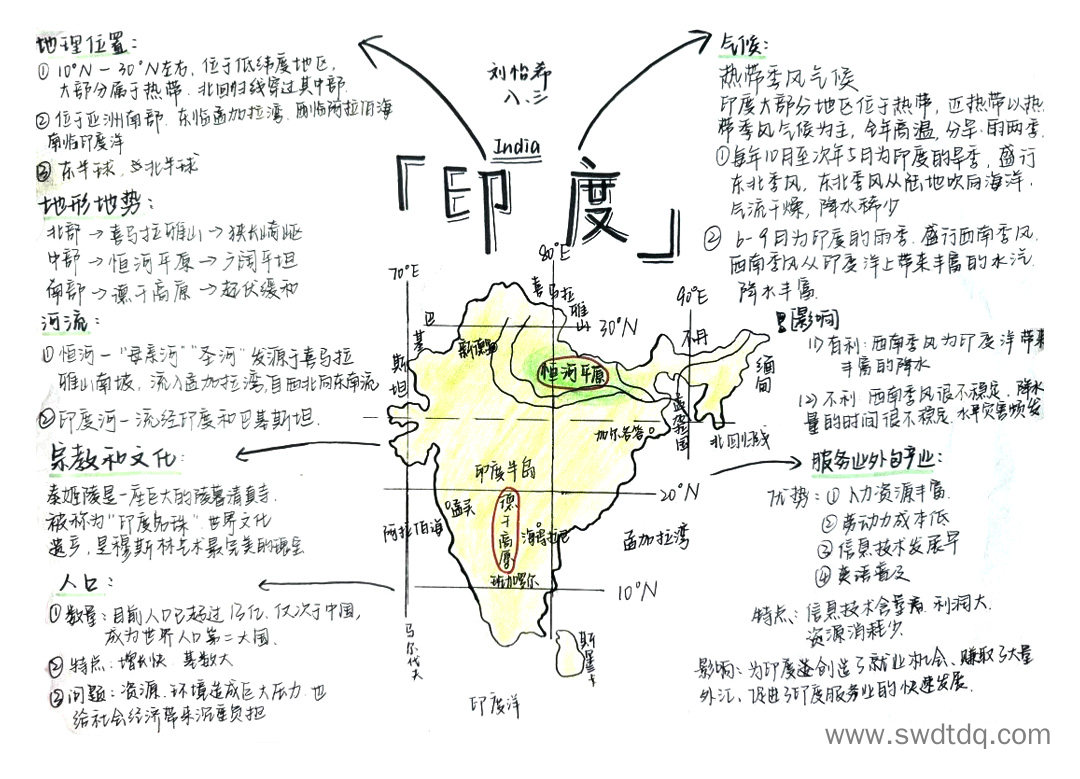 地理位置:
① 10°N-30°N左右,位于低纬度地区,
大部分属于热带.北回归线穿过其中部.
② 位于亚洲南部.东临孟加拉湾.西临阿拉伯海
南临印度洋
③ 东半球、北半球
地形地势:
北部→喜马拉雅山→狭长崎岖
中部→恒河平原→广阔平坦
南部→德干高原→起伏缓和
河流:
① 恒河-“母亲河”“圣河”发源于喜马拉
雅山南坡.流入孟加拉湾,自西北向东南流
② 印度河-流经印度和巴基斯坦.
宗教和文化:
泰姬陵是一座巨大的陵墓清真寺.
被称为“印度明珠”.世界文化
遗产,是穆斯林艺术最完美的瑰宝
人口:
① 数量:目前人口已超过13亿,仅次于中国,
成为世界人口第二大国.
② 特点:增长快.基数大
③ 问题:资源.环境造成巨大压力.也
给社会经济带来沉重负担
刘怡希
八、三
India
「印度」
70°E
80°E
90°E
喜马拉
雅山
30°N
巴
基
斯
坦
新德里
不丹
缅甸
恒河平原
孟加拉国
加尔各答
北回归线
印度半岛
20°N
孟买
阿拉伯海
德干高原
海得拉巴
孟加拉湾
班加罗尔
10°N
马尔代夫
斯里兰卡
印度洋
气候:
热带季风气候
印度大部分地区位于热带,区热带以热
带季风气候为主,全年高温,分旱.雨两季.
① 每年10月至次年5月为印度的旱季,盛行
东北季风,东北季风从陆地吹向海洋.
气流干燥,降水稀少
② 6-9月为印度的雨季.盛行西南季风.
西南季风从印度洋上带来丰富的水汽.
降水丰富.
影响
(1)有利:西南季风为印度洋带来
丰富的降水
(2)不利:西南季风很不稳定.降水
量的时间很不稳定.水旱灾害频发
服务业外包产业:
优势:① 人力资源丰富.
② 劳动力成本低
③ 信息技术发展早
④ 英语普及
特点:信息技术含量高.利润大.
资源消耗少.
影响:为印度创造了就业机会、赚取了大量
外汇、促进了印度服务业的快速发展.
www.swdtdq.com